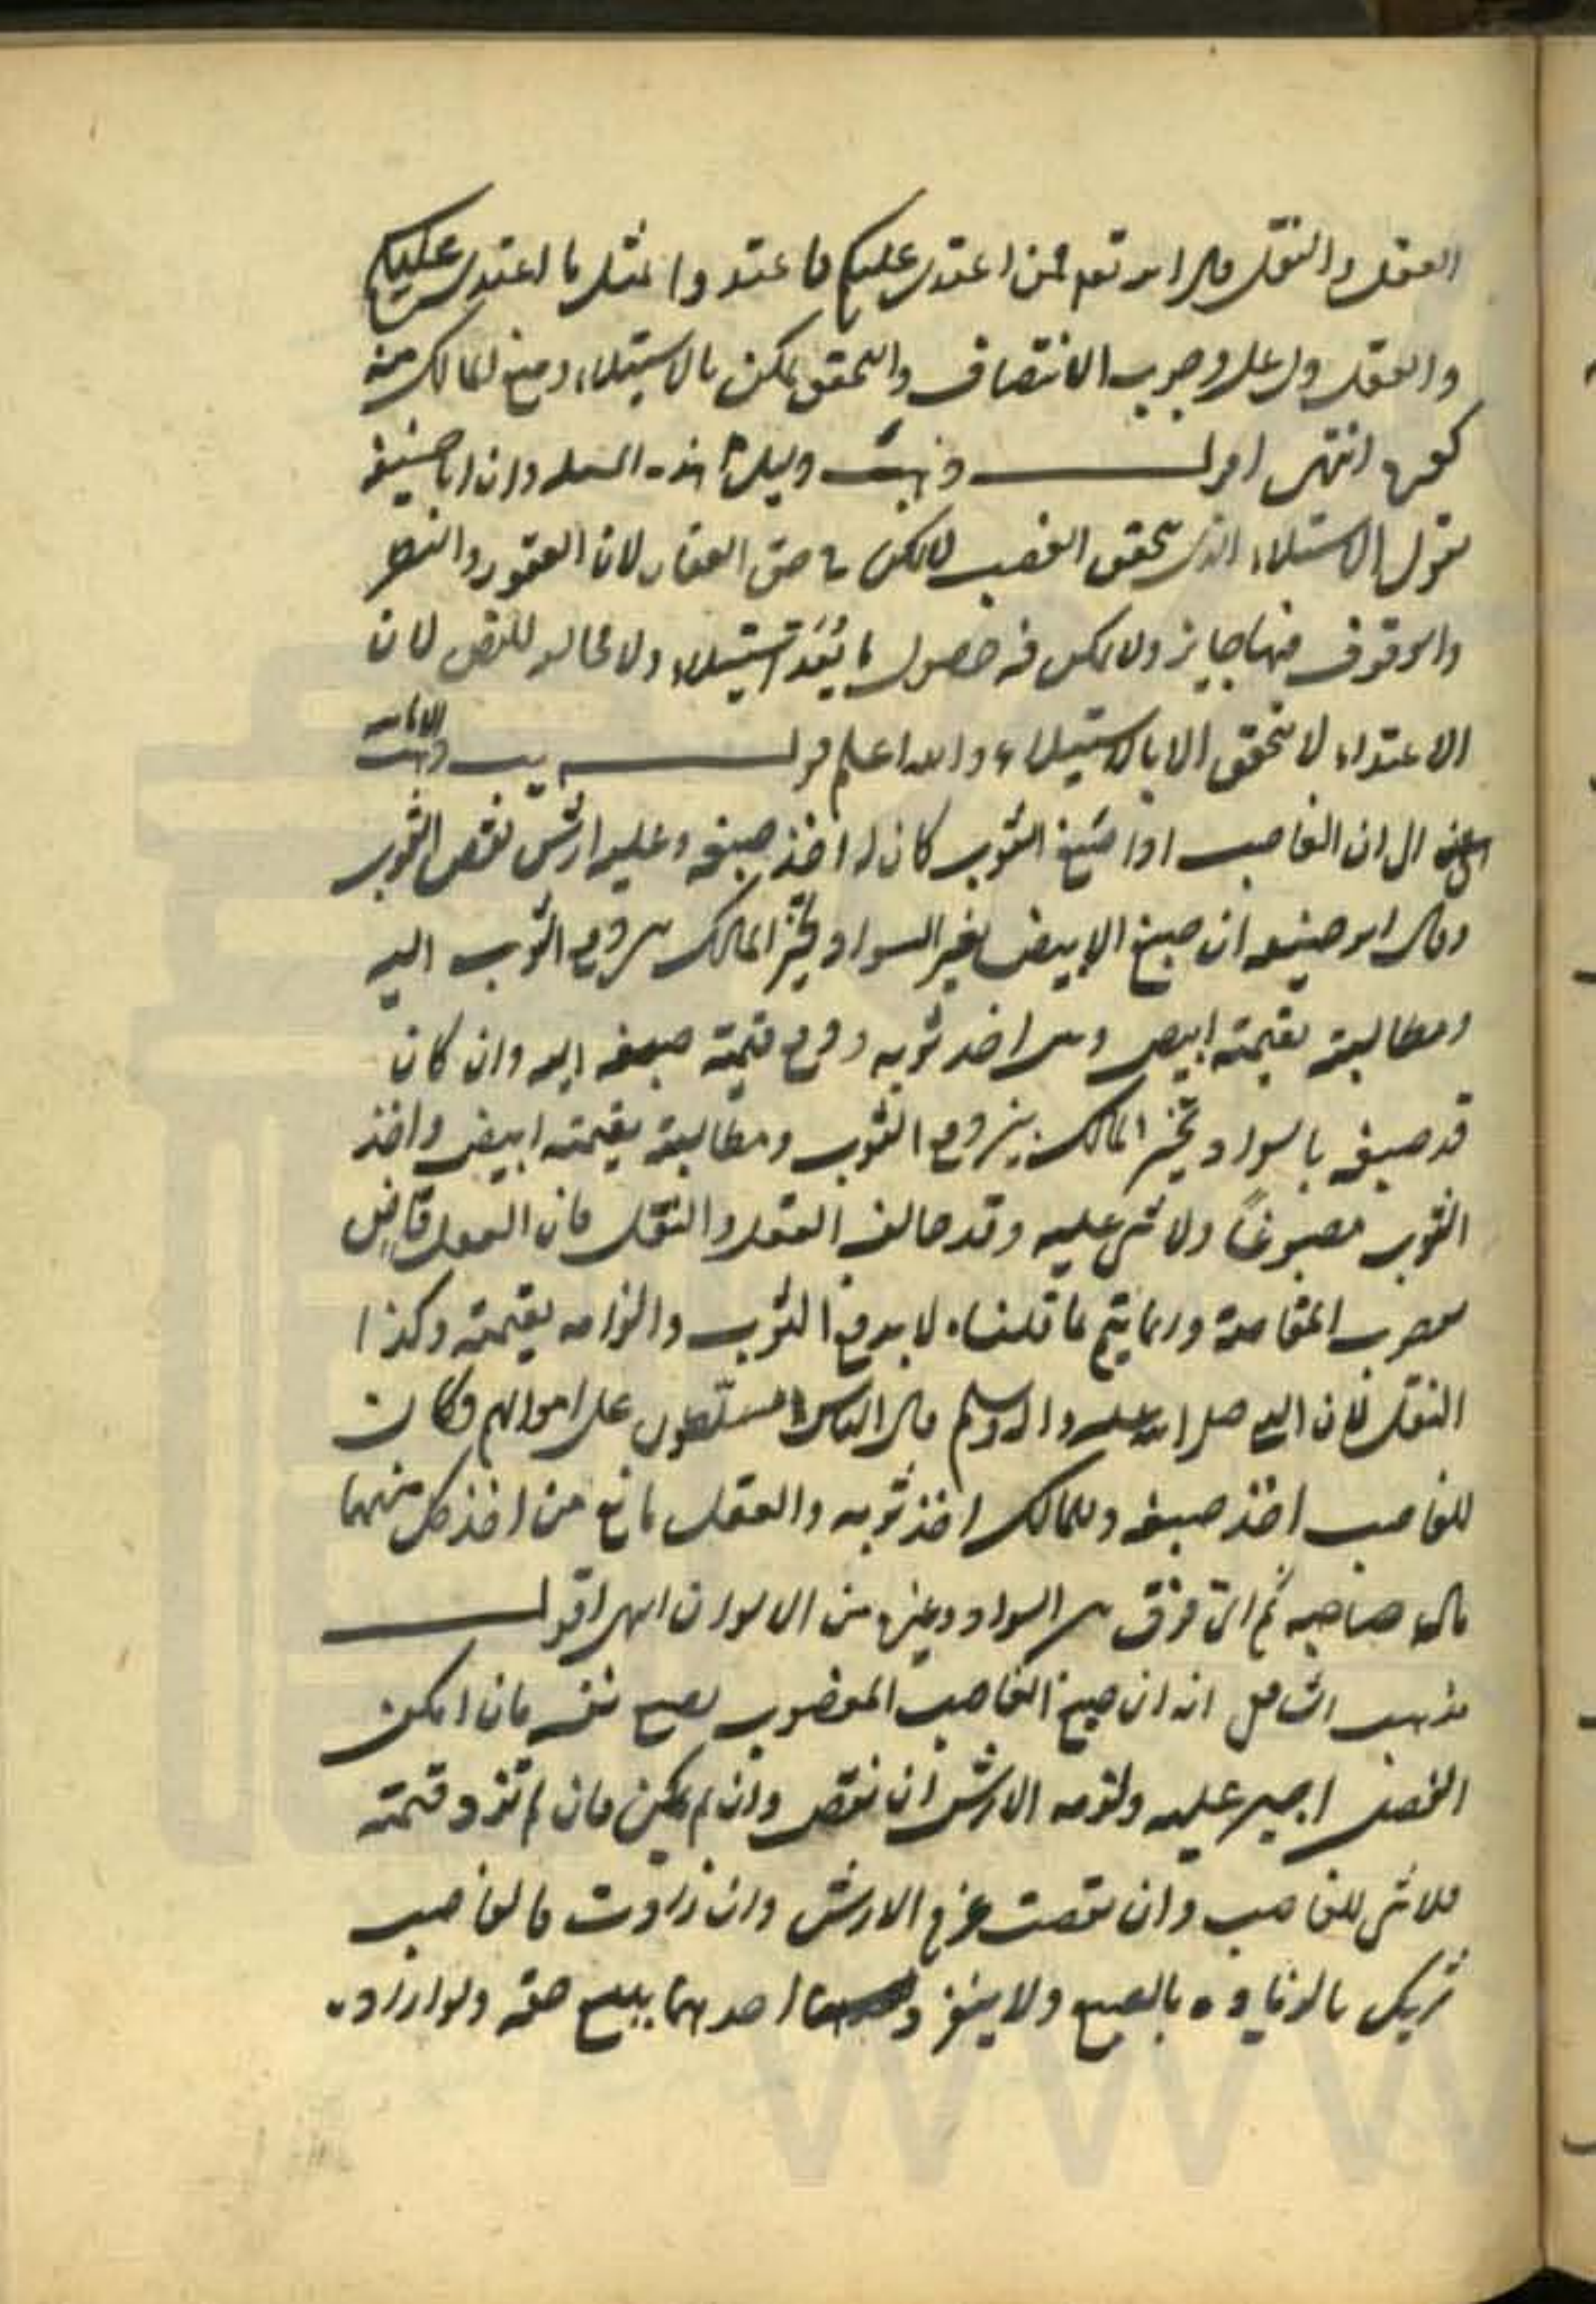 العقل والنقل قال الله تعالى فمن اعتدى عليكم فاعتدوا بمثل ما اعتدى عليكم
والعقل دل على وجوب الانتصاف والتحقق يمكن بالاستيلاء ومنع المالك منه
انتهى اقول وذهبت دليل هذه المسئلة وان ابا حنيفة
يقول الاستيلاء الذي تحقق الغصب لا يمكن في حق العقار لان العقود والنظر
والوقوف فيها جايز ولا يمكن فيه حصول ما يُعَدّ استيلاء ولا مخالفة للنص لان
الاعتداء لا يتحقق الا بالاستيلاء والله اعلم قوله يب ذهبت الامامية
الى ان الغاصب اذا صبغ الثوب كان له اخذ صبغه وعليه ارش نقص الثوب
وقال ابو حنيفة ان صبغ الابيض بغير السواد تخير المالك بين دفع الثوب اليه
ومطالبته بقيمته ابيض وبين اخذ ثوبه ودفع قيمة صبغه اليه وان كان
قد صبغه بالسواد تخير المالك بين دفع الثوب ومطالبته بقيمته ابيض واخذ
الثوب مصبوغاً ولا شئ عليه وقد خالف العقل والنقل فان العقل قاض
بوجوب المقاصة وانما يتم بما قلناه لا بدفع الثوب والزامه بقيمته وكذا
النقل فان النبي صلى الله عليه واله وسلم قال الناس مسلّطون على اموالهم وكان
للغاصب اخذ صبغه وللمالك اخذ ثوبه والعقل مانع من اخذ كل منهما
مال صاحبه ثم اي فرق بين السواد وغيره من الالوان انتهى اقول
مذهب الشافعي انه ان صبغ الغاصب المغصوب بصبغ نفسه فان امكن
الفصل اجبر عليه ولزمه الارش ان نقص وان لم يمكن فان لم تزد قيمته
فلا شئ للغاصب وان نقصت غرم الارش وان زادت فالغاصب
شريك بالزيادة بالصبغ ولا ينفرد احدهما ببيع حقه ولو اراد